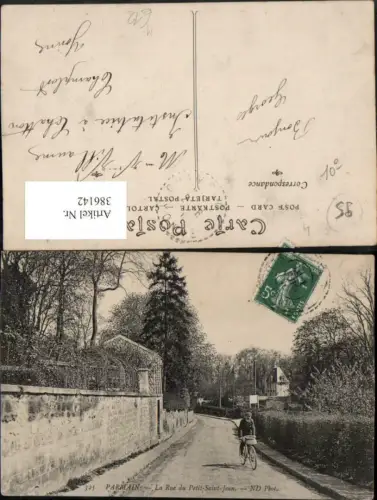 Carte Postale
POST CARD — POSTKARTE — CARTOL
TARJETA POSTAL
Correspondance
Bonjour
George
M
Villaume
Institutrice à Chatton
Champfort
10°
95
Artikel Nr.
386142
5c
325 PARMAIN. — La Rue du Petit-Saint-Jean. — ND Phot.